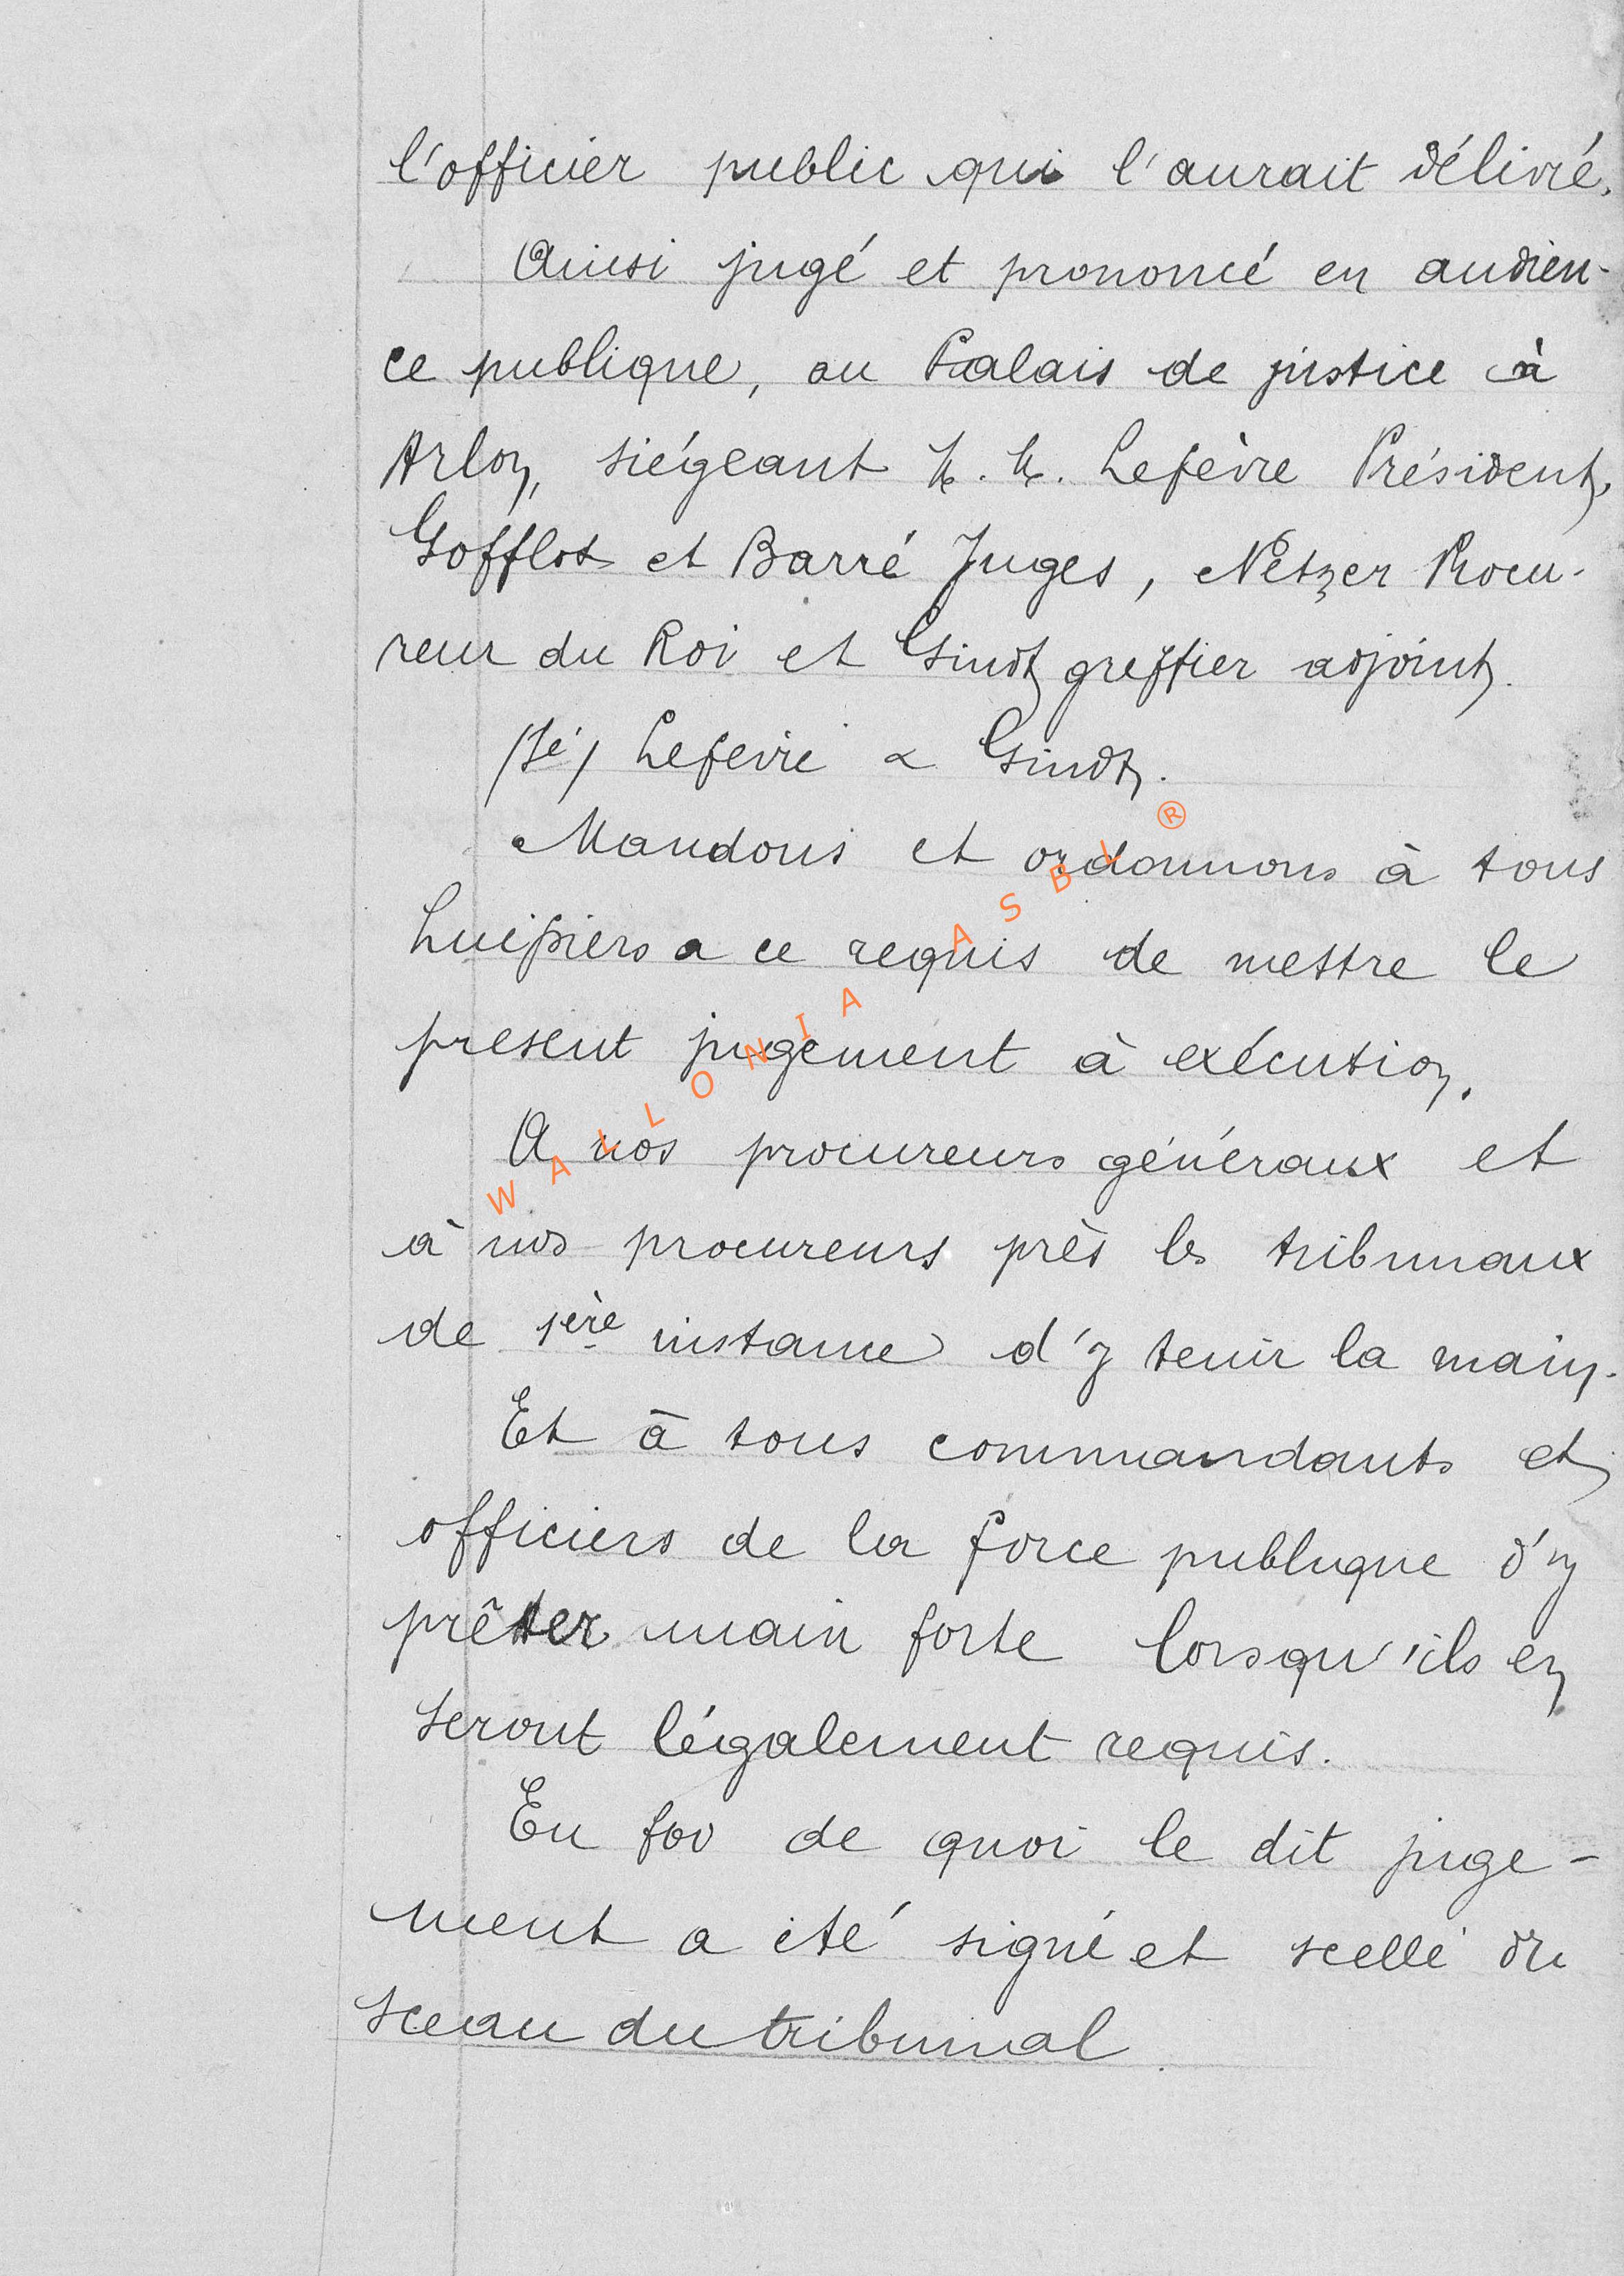 l'officier public qui l'aurait délivré.
Ainsi jugé et prononcé en audien-
ce publique, au Palais de justice à
Arlon, siégeant M. M. Lefèvre Président,
Gofflot et Barré Juges, Netzer Procu-
reur du Roi et Gindt greffier adjoint.
(Sé) Lefèvre & Gindt.
Mandons et ordonnons à tous
huissiers a ce requis de mettre le
present jugement à exécution.
A nos procureurs généraux et
à nos procureurs près les tribunaux
de 1ère instance d'y tenir la main.
Et à tous commandants et
officiers de la force publique d'y
prêter main forte lorsqu'ils en
seront légalement requis.
En foi de quoi le dit juge-
ment a été signé et scellé du
sceau du tribunal.
WALLONIA ASBL ®